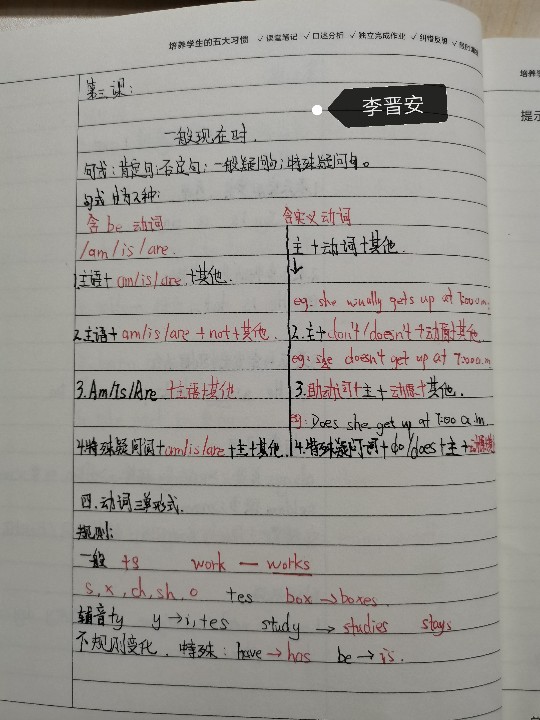 培养学生的五大习惯 ✓课堂笔记 ✓口述分析 ✓独立完成作业 ✓纠错反思
培养学
提示
李晋安
第三课:
一般现在时.
句式:肯定句;否定句;一般疑问句;特殊疑问句。
句式分为2种:
含be动词 含实义动词
/am/is/are. 主+动词+其他.
1主语+am/is/are.+其他. eg. she usually gets up at 7:00 a.m.
2.主语+am/is/are+not+其他. 2.主+don't/doesn't+动原+其他
eg: she doesn't get up at 7:00 a.m.
3.Am/Is/Are +主语+其他 3.助动词+主+动原+其他.
eg: Does she get up at 7:00 a.m.
4.特殊疑问词+am/is/are+主+其他. 4.特殊疑问词+do/does+主+
四.动词三单形式.
规则:
一般 +s work — works
s,x,ch,sh,o +es box→boxes.
辅音+y y→i,+es study → studies stays
不规则变化.特殊: have→has be→is.